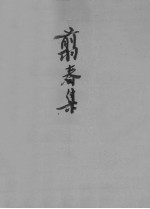 翦春集